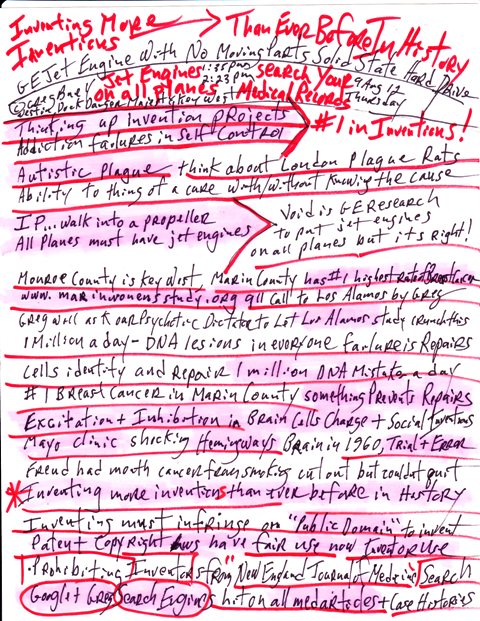 Inventing More Than Ever Before In History
Inventions
GE Jet Engine With No Moving Parts Solid State Hard Drive
Jet Engines 1:35pm search Your 9 Aug 12
on all planes 2:23pm Medical Records Thursday
@ Greg Buell Westin Dock Danger Majesty Key West
Thinking up invention projects
Addiction failures in self control
#1 in Inventions!
Autistic Plague think about London Plague Rats
Ability to thing of a cure with/without Knowing the cause
IP...walk into a propeller
All Planes must have jet engines
Void is GE Research
to put jet engines
on all planes but it's right!
Monroe County is Key West, Marin County has #1 highest rate of Breast Cancer
www.marinwomensstudy.org 911 call to Los Alamos by Greg
Greg will ask Psychotic Dictator to Let Los Alamos study crunch this
1 Million a day - DNA lesions in everyone failure is Repairs
Cells identify and Repair 1 million DNA Mistakes a day
#1 Breast Cancer in Marin County something Prevents Repairs
Excitation + Inhibition in Brain Cells Charge + Social Inventions
Mayo clinic shocking Hemingways Brain in 1960, Trial + Error
Freud had mouth cancer from smoking cut out but couldnt quit
*Inventing more inventions than ever before in History
Inventing must infringe on "Public Domain" to invent
Patent Copyright laws have fair use now Inventor Use
Prohibiting Inventors from "New England Journal of Medicine" Search
Google + Greg Search Engines hit on all med articles + Case Histories